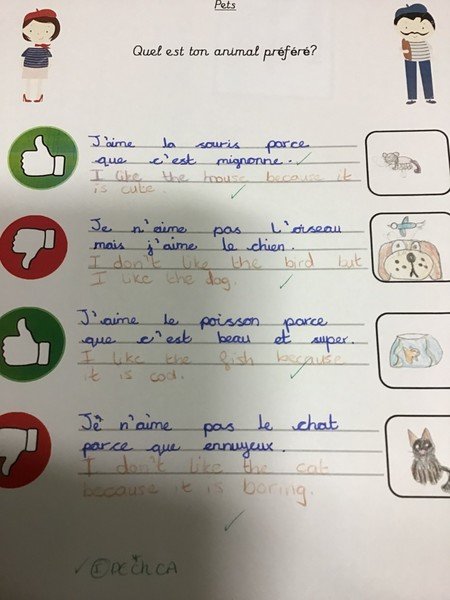 Pets
Quel est ton animal préféré?
J'aime la souris parce
que c'est mignonne.
I like the mouse because it
is cute.
Je n'aime pas l'oiseau
mais j'aime le chien.
I don't like the bird but
I like the dog.
J'aime le poisson parce
que c'est beau et super.
I like the fish because
it is cool.
Je n'aime pas le chat
parce que ennuyeux.
I don't like the cat
because it is boring.